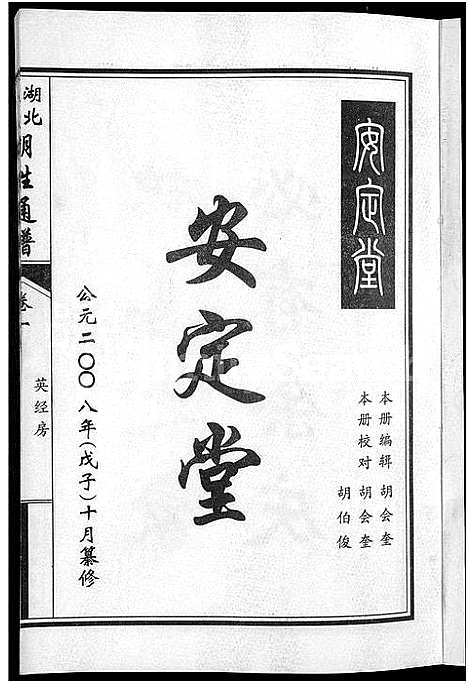 安定堂
本册编辑 胡会奎
本册校对 胡会奎
胡伯俊
安定堂
公元二〇〇八年(戊子)十月纂修
湖北胡姓通谱
卷一
英经房